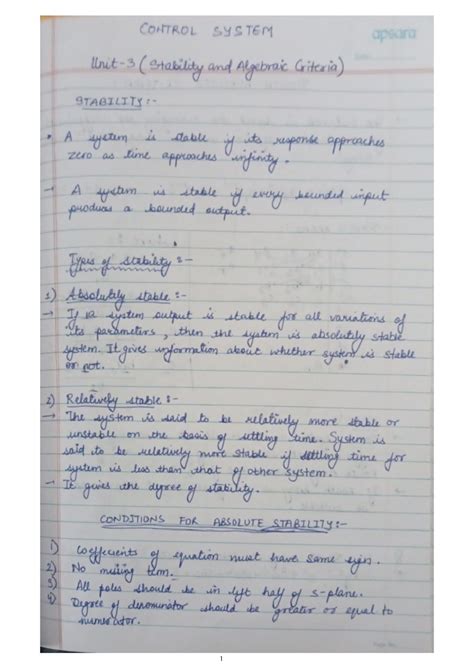 CONTROL SYSTEM
apsara
Unit-3 (Stability and Algebraic Criteria)
STABILITY:-
• A system is stable if its response approaches
zero as time approaches infinity.
→ A system is stable if every bounded input
produces a bounded output.
Types of stability:-
1) Absolutely stable:-
→ If a system output is stable for all variations of
its parameters, then the system is absolutely stable
system. It gives information about whether system is stable
or not.
2) Relatively stable:-
→ The system is said to be relatively more stable or
unstable on the basis of settling time. System is
said to be relatively more stable if settling time for
system is less than that of other system.
→ It gives the degree of stability.
CONDITIONS FOR ABSOLUTE STABILITY:-
1) Coefficients of equation must have same sign.
2) No missing term.
3) All poles should be in left half of s-plane.
4) Degree of denominator should be greater or equal to
numerator.
1